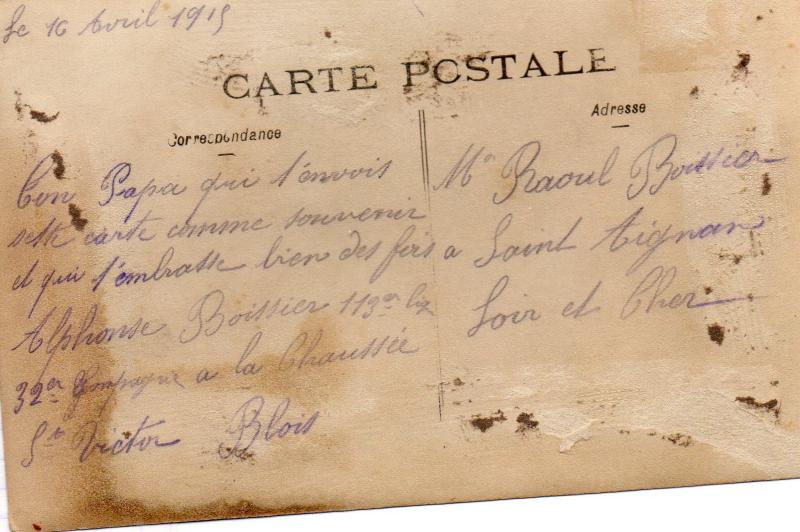 Le 16 Avril 1915
CARTE POSTALE
Correspondance
Adresse
Ton Papa qui t'envois
sette carte comme souvenir
et qui t'embrasse bien des fois
Alphonse Boissier 113er
32er Compagnie a la Chaussée
St Victor Blois
Mr Raoul Boissier
a Saint Aignan
Loir et Cher